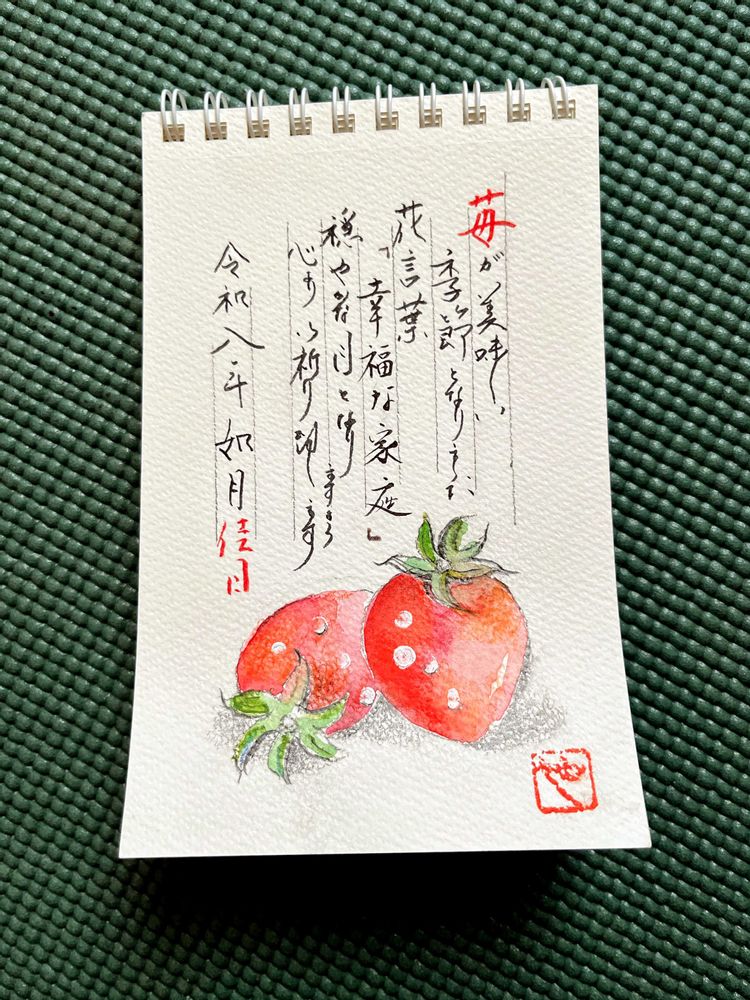 苺が美味しい
季節となりました
花言葉
「幸福な家庭」
穏やかな日となり
ますよう
心より祈ります
令和八年如月佳日